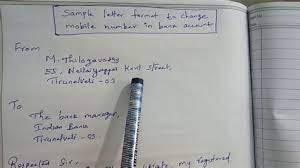 Sample letter format to change
mobile number in bank account
From
M. Thilagavathy
55, Nellaiyappar Kovil Street,
Tirunelveli - 03
To
The bank manager,
Indian Bank
Tirunelveli - 03.
Respected Sir,
my registered